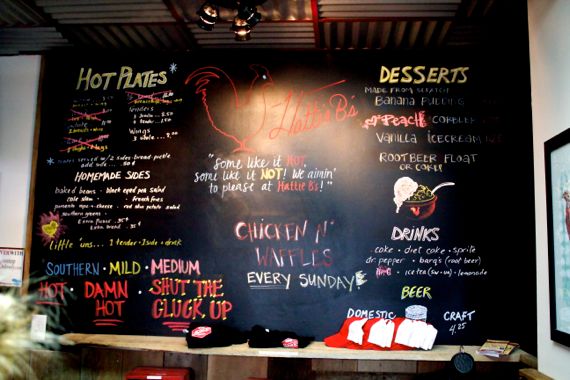 HOT PLATES
tenders
Wings
served w/ 2 sides bread pickle
add side
HOMEMADE SIDES
baked beans · black eyed pea salad
cole slaw · french fries
pimento mac + cheese · red skin potato salad
southern greens
little 'uns... 1 tender · 1 side + drink
SOUTHERN · MILD · MEDIUM
HOT · DAMN HOT · SHUT THE CLUCK UP
Hattie B's
"Some like it HOT,
some like it NOT! We aimin'
to please at Hattie B's!"
CHICKEN N'
WAFFLES
EVERY SUNDAY!
DESSERTS
MADE FROM SCRATCH
BANANA PUDDING
Peach COBBLER
Vanilla ICECREAM
ROOTBEER FLOAT
OR COKE!
DRINKS
coke · diet coke · sprite
dr. pepper · barq's (root beer)
ice tea (sw·un) · lemonade
BEER
DOMESTIC
CRAFT
4.25